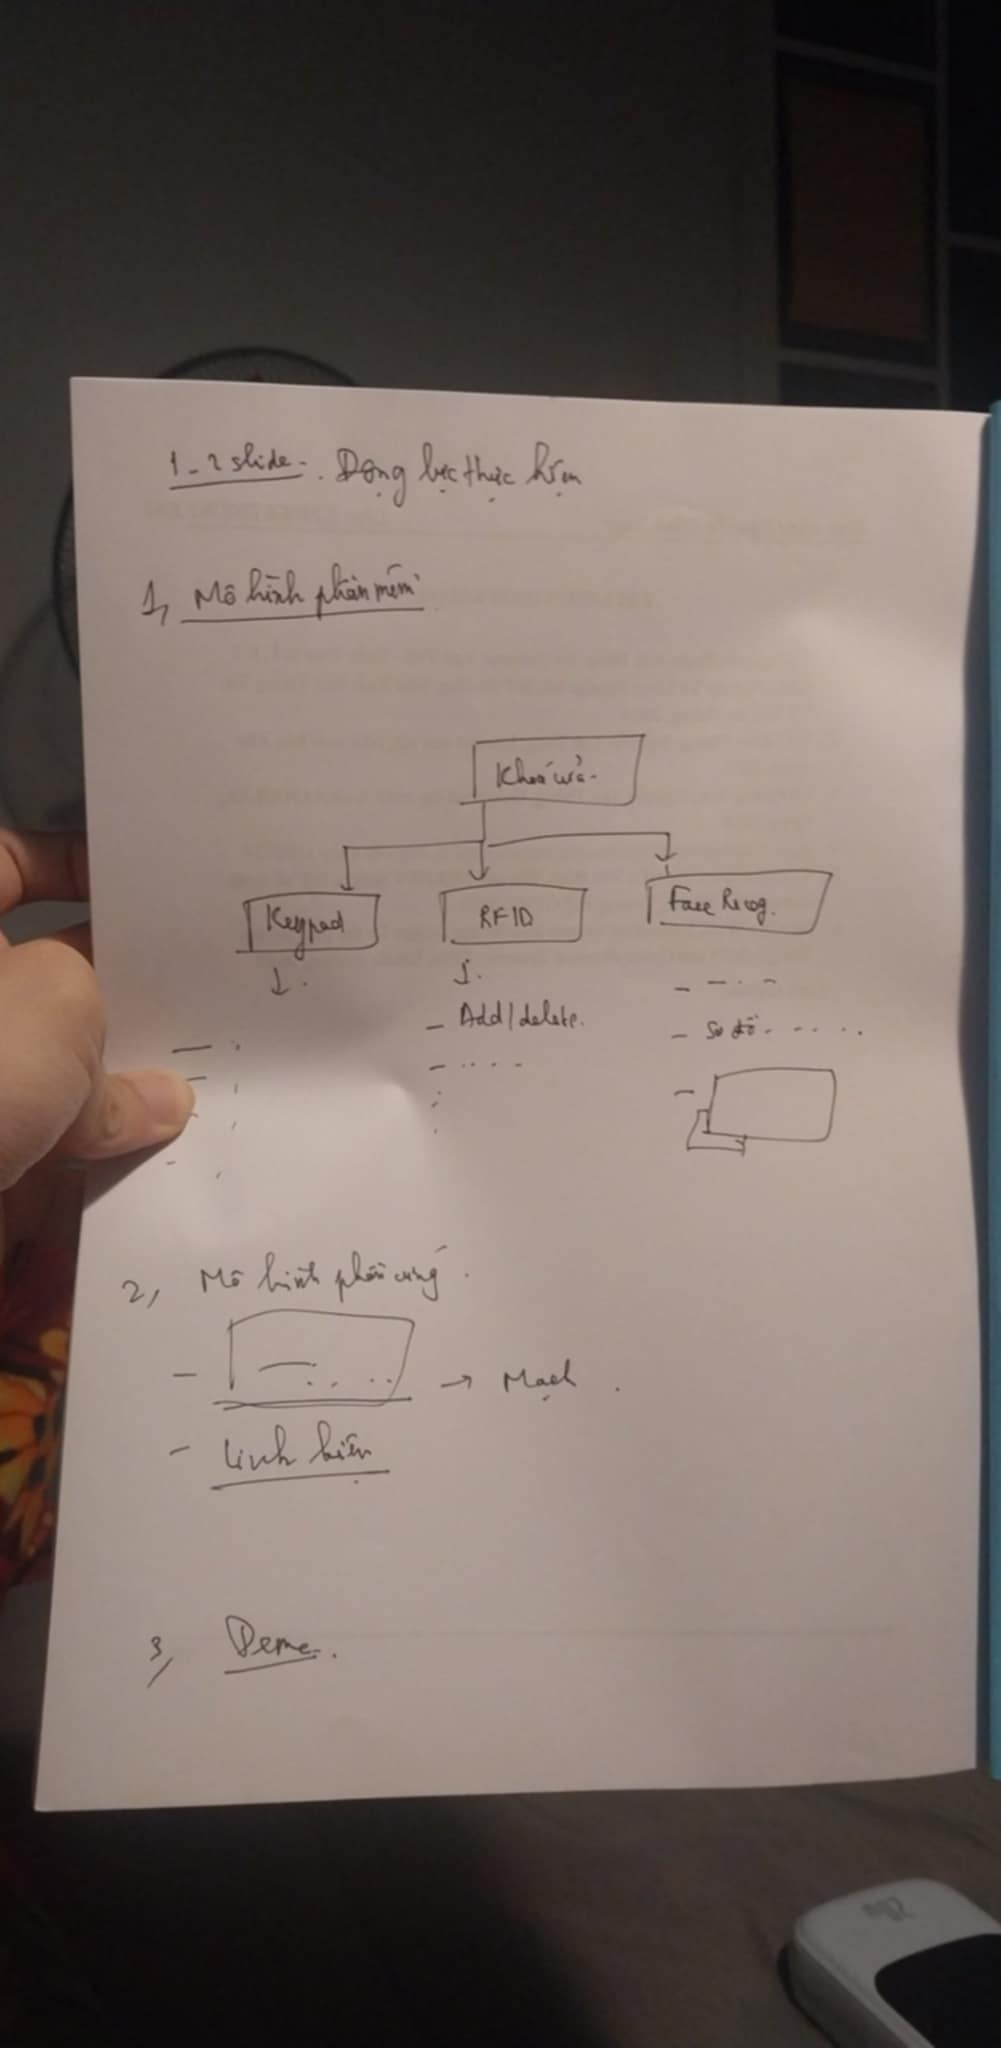 1-2 slide. Động lực thực hiện
1, Mô hình phần mềm
Khoá cửa
Keypad
RFID
Face Recog.
- Add/delete.
- Sơ đồ.....
2, Mô hình phần cứng
→ Mạch.
- Linh kiện
3, Demo.